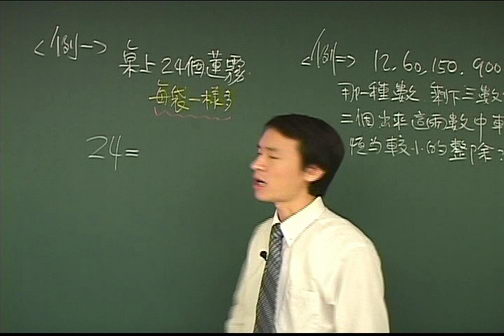 <例一>
桌上24個蓮霧
每袋一樣多
24=
<例二> 12.60.150.900
那一種數 剩下三數
二個出來這兩數中
恆當較小的整除